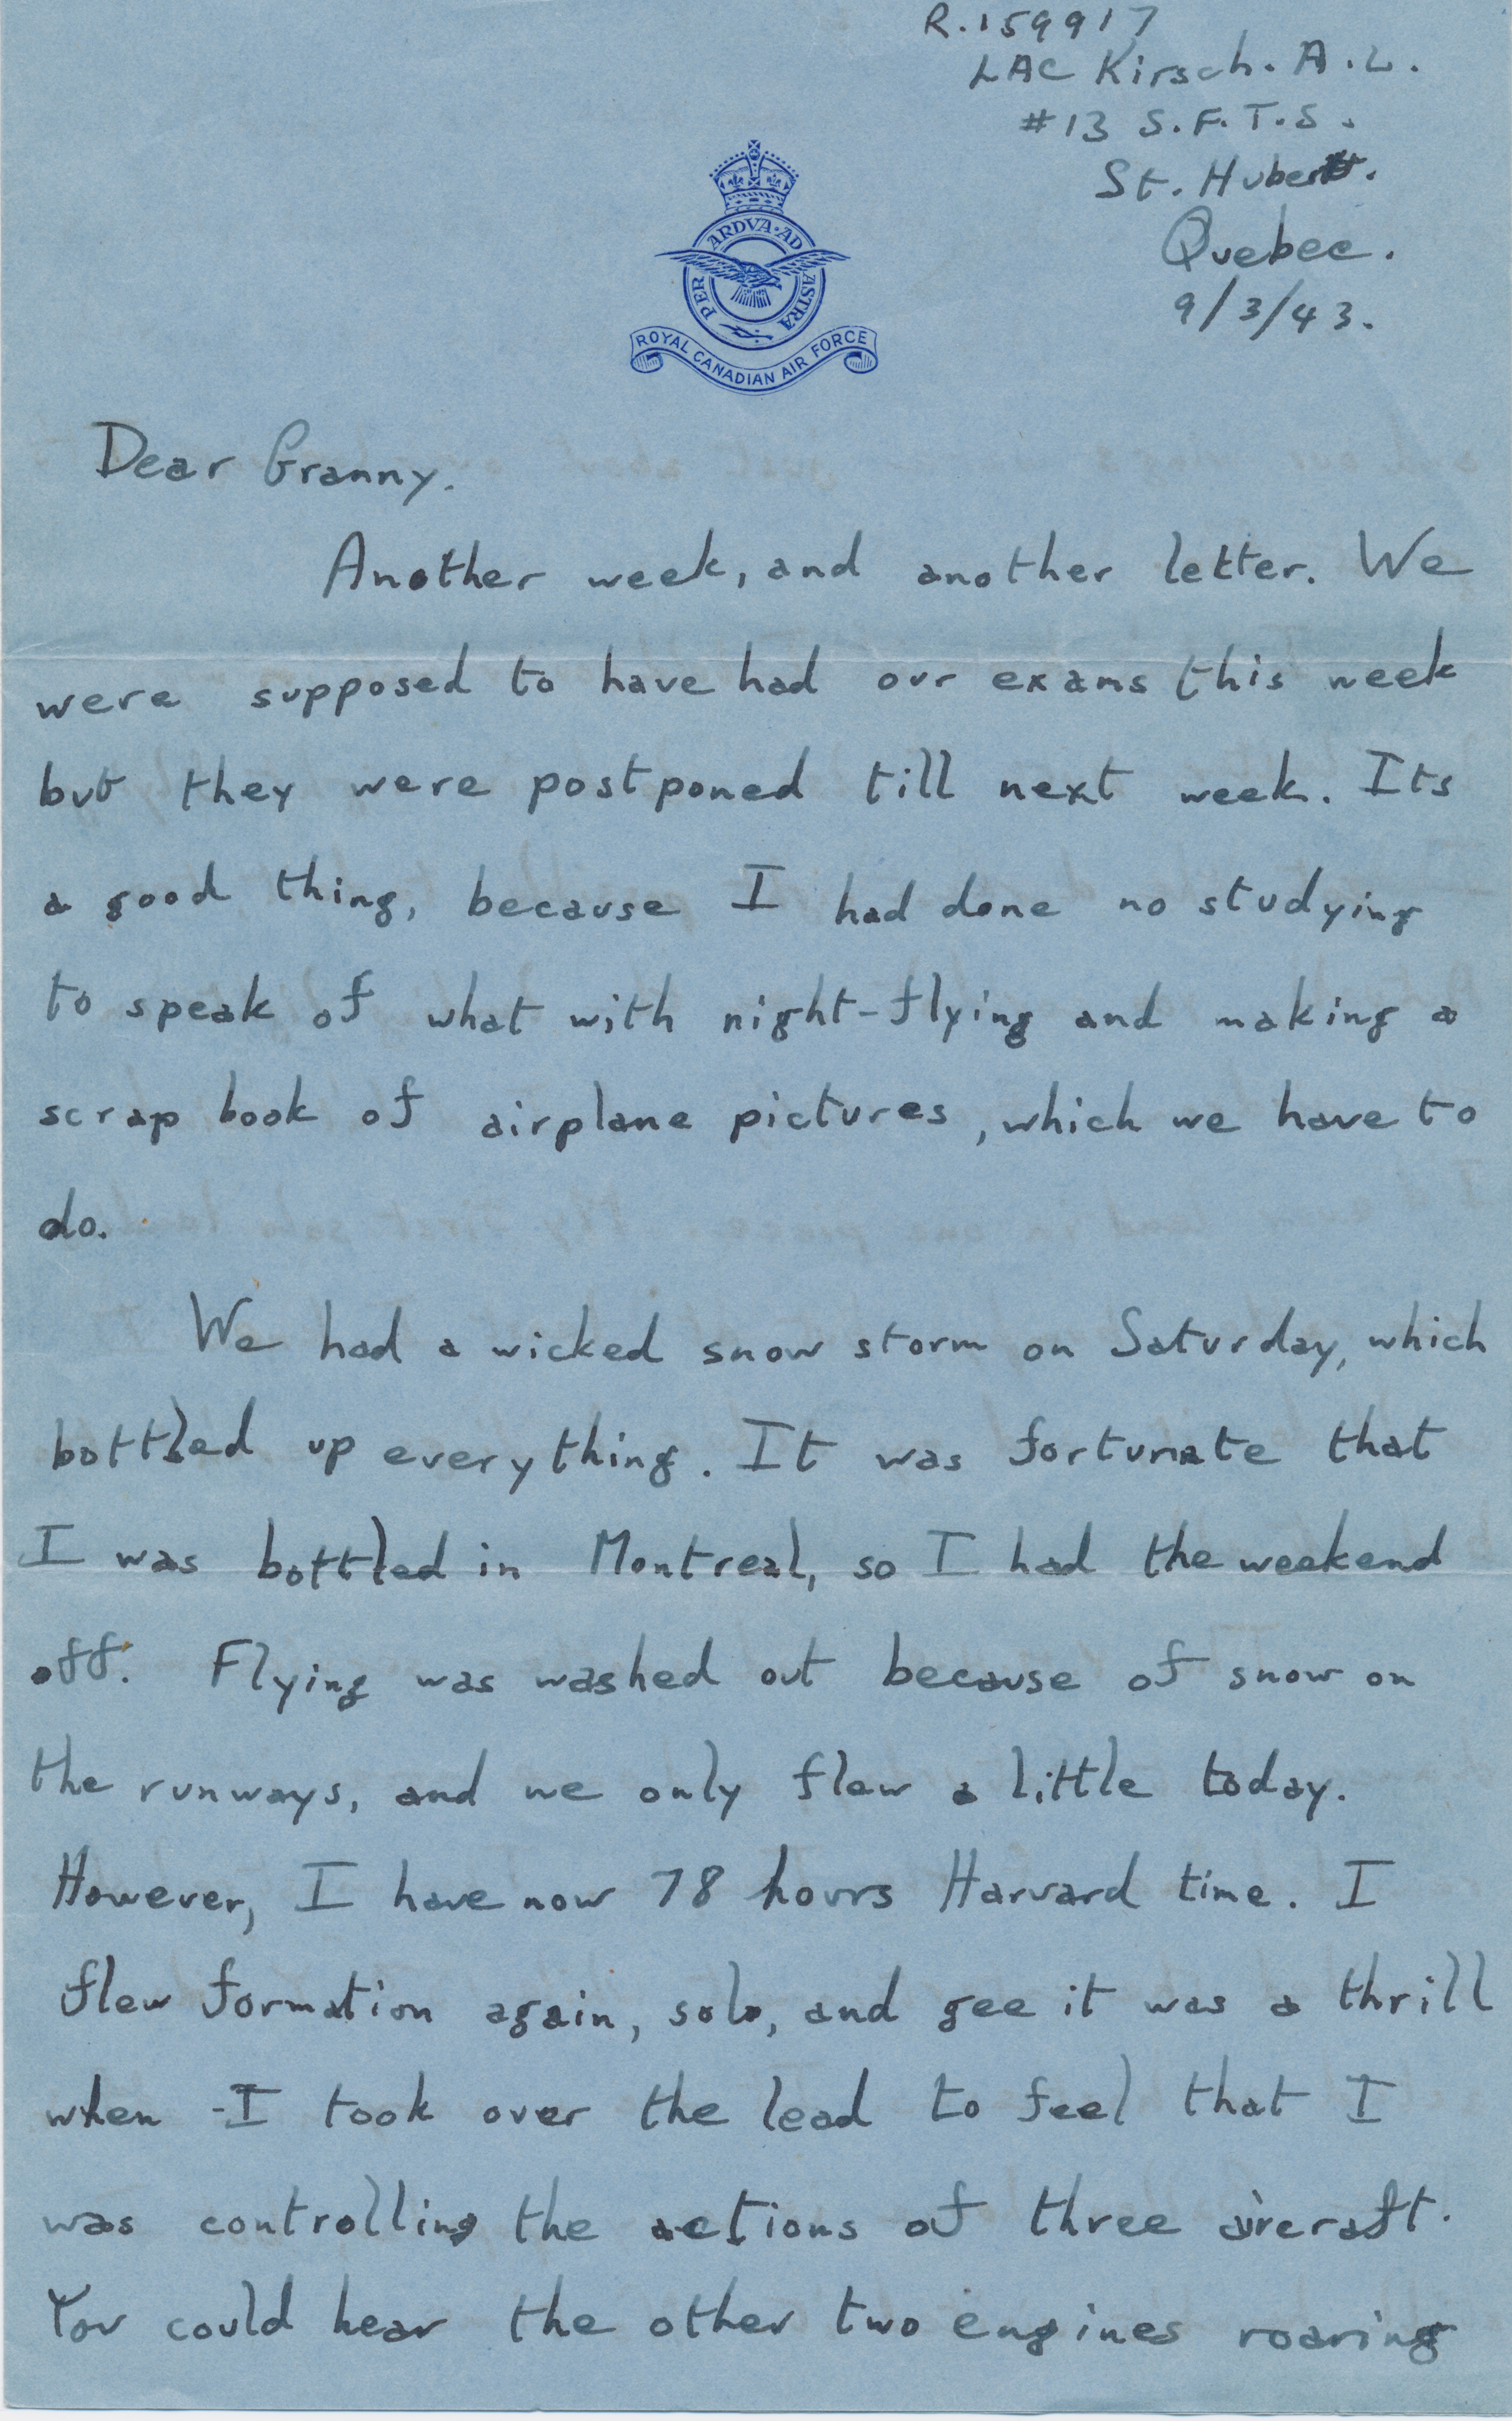 R.159917
LAC Kirsch. A.L.
#13 S.F.T.S.
St. Hubert.
Quebec.
9/3/43.
PER ARDVA·AD ASTRA
ROYAL CANADIAN AIR FORCE
Dear Granny.
Another week, and another letter. We
were supposed to have had our exams this week
but they were postponed till next week. Its
a good thing, because I had done no studying
to speak of what with night-flying and making a
scrap book of airplane pictures, which we have to
do.
We had a wicked snow storm on Saturday, which
bottled up everything. It was fortunate that
I was bottled in Montreal, so I had the weekend
off. Flying was washed out because of snow on
the runways, and we only flew a little today.
However, I have now 78 hours Harvard time. I
flew formation again, solo, and gee it was a thrill
when I took over the lead to feel that I
was controlling the actions of three aircraft.
You could hear the other two engines roaring